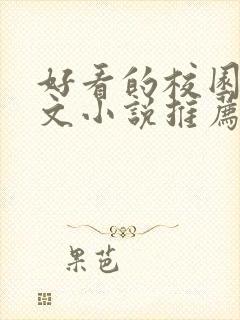 好看的校园
文小説推薦
果芭